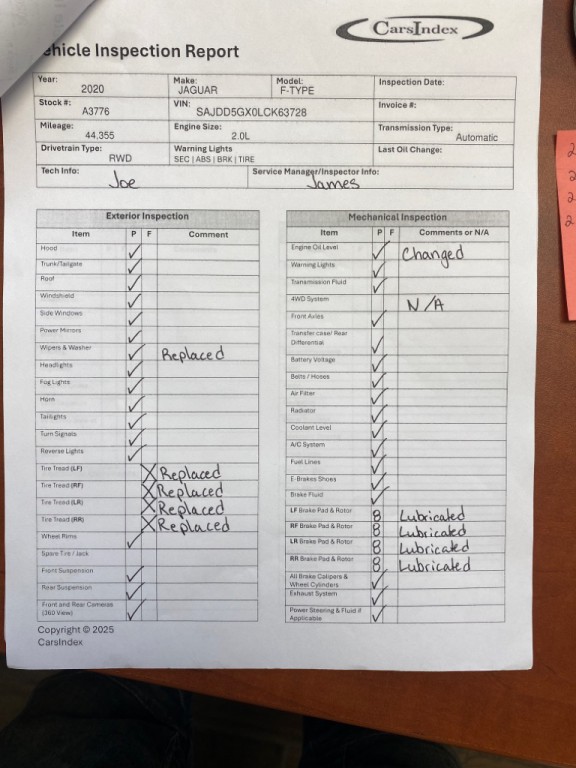 CarsIndex
ehicle Inspection Report
Year: 2020 Make: JAGUAR Model: F-TYPE Inspection Date:
Stock #: A3776 VIN: SAJDD5GX0LCK63728 Invoice #:
Mileage: 44,355 Engine Size: 2.0L Transmission Type: Automatic
Drivetrain Type: RWD Warning Lights SEC | ABS | BRK | TIRE Last Oil Change:
Tech Info: Joe Service Manager/Inspector Info: James
Exterior Inspection
Item P F Comment
Hood ✓
Trunk/Tailgate ✓
Roof ✓
Windshield ✓
Side Windows ✓
Power Mirrors ✓
Wipers & Washer ✓ Replaced
Headlights ✓
Fog Lights ✓
Horn ✓
Taillights ✓
Turn Signals ✓
Reverse Lights ✓
Tire Tread (LF) X Replaced
Tire Tread (RF) X Replaced
Tire Tread (LR) X Replaced
Tire Tread (RR) X Replaced
Wheel Rims ✓
Spare Tire / Jack
Front Suspension ✓
Rear Suspension ✓
Front and Rear Cameras
(360 View) ✓
Copyright © 2025
CarsIndex
Mechanical Inspection
Item P F Comments or N/A
Engine Oil Level ✓ Changed
Warning Lights ✓
Transmission Fluid ✓
4WD System N/A
Front Axles ✓
Transfer case/ Rear
Differential ✓
Battery Voltage ✓
Belts / Hoses ✓
Air Filter ✓
Radiator ✓
Coolant Level ✓
A/C System ✓
Fuel Lines ✓
E-Brakes Shoes ✓
Brake Fluid ✓
LF Brake Pad & Rotor 8 Lubricated
RF Brake Pad & Rotor 8 Lubricated
LR Brake Pad & Rotor 8 Lubricated
RR Brake Pad & Rotor 8 Lubricated
All Brake Calipers &
Wheel Cylinders ✓
Exhaust System ✓
Power Steering & Fluid if
Applicable ✓
2
2
2
2